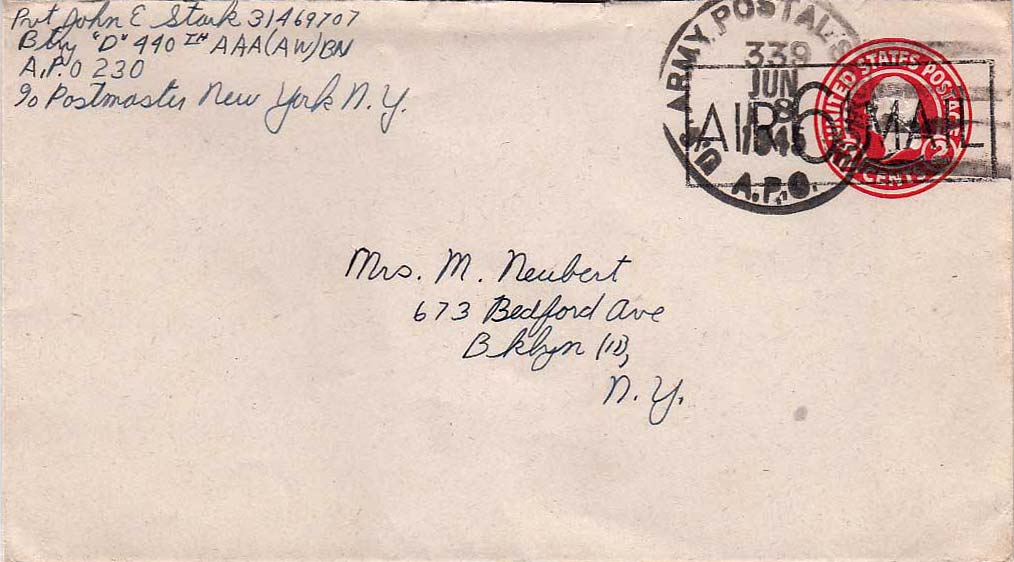 Pvt John E Stark 31469707
Btry "D" 440TH AAA(AW)BN
A.P.O 230
c/o Postmaster New York N.Y.
ARMY POSTAL S
339
JUN
8
1945
A.P.O.
AIR MAIL
UNITED STATES POSTAGE
2 CENTS 2
Mrs. M. Neubert
673 Bedford Ave
Bklyn (11),
N.Y.